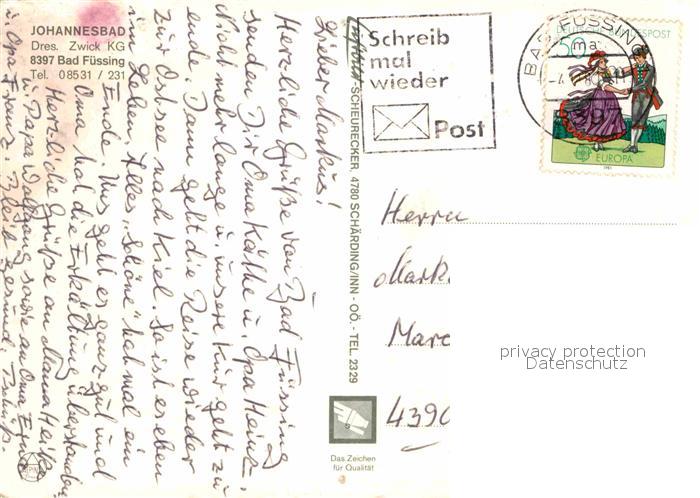 JOHANNESBAD
Dres. Zwick KG
8397 Bad Füssing
Tel. 08531 / 231
Lieber Markus!
Herzliche Grüße von Bad Füssing
senden Dir Oma Käthe u. Opa Heinz.
Nicht mehr lange u. unsere Kur geht zu
ende. Dann geht die Reise wieder
zur Ostsee nach Kiel. So ist es eben
im Leben. Alles "Schöne" hat mal ein
Ende. Uns geht es ganz gut und
Oma hat die Erkältung überstanden.
Herzliche Grüße an Mama
u. Papa sowie an Oma
u. Opa Franz. Bleib gesund. Tschüß.
SCHEURECKER, 4780 SCHÄRDING/INN - OÖ. - TEL. 23 29
Schreib
mal
wieder
Post
BAD FÜSSING
DEUTSCHE BUNDESPOST
50
EUROPA
1981
Herrn
Mark
Marc
4390
privacy protection
Datenschutz
Das Zeichen
für Qualität